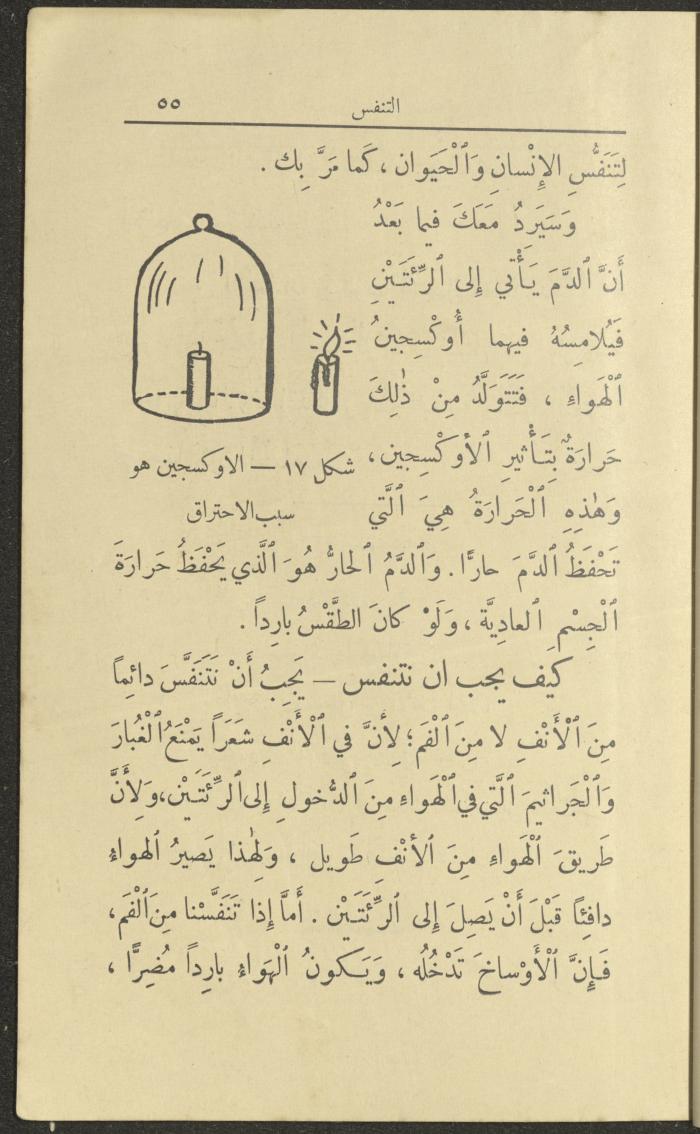 التنفس ٥٥
لِتَنَفُّسِ الإِنْسانِ وَٱلْحَيَوان ، كَما مَرَّ بِك .
وَسَيَرِدُ مَعَكَ فيما بَعْدُ
أَنَّ ٱلدَّمَ يَأْتي إِلى ٱلرِّئَتَيْنِ
فَيُلامِسُهُ فيهما أُوكْسِجينُ
ٱلْهَواءِ ، فَتَتَوَلَّدُ مِنْ ذٰلِكَ
حَرارَةٌ بِتَأْثيرِ ٱلأوكْسِجين ،
وَهٰذِهِ ٱلْحَرارَةُ هِيَ ٱلَّتي
شكل ١٧ — الاوكسجين هو
سبب الاحتراق
تَحْفَظُ ٱلدَّمَ حارًّا . وَٱلدَّمُ ٱلحارُّ هُوَ ٱلَّذي يَحْفَظُ حَرارَةَ
ٱلْجِسْمِ ٱلعادِيَّة ، وَلَوْ كانَ الطَّقْسُ بارِداً .
كيف يجب ان نتنفس — يَجِبُ أَنْ نَتَنَفَّسَ دائِماً
مِنَ ٱلْأَنْفِ لا مِنَ ٱلْفَم ؛ لِأَنَّ في ٱلْأَنْفِ شَعَرَاً يَمْنَعُ ٱلْغُبارَ
وَٱلْجَراثيمَ ٱلَّتي في ٱلْهَواءِ مِنَ ٱلدُّخولِ إِلى ٱلرِّئَتَيْن ، وَلِأَنَّ
طَريقَ ٱلْهَواءِ مِنَ ٱلأَنْفِ طَويل ، وَلِهٰذا يَصيرُ ٱلهواءُ
دافِئاً قَبْلَ أَنْ يَصِلَ إِلى ٱلرِّئَتَيْن . أَمَّا إِذا تَنَفَّسْنا مِنَ ٱلْفَم ،
فَإِنَّ ٱلْأَوْساخَ تَدْخُلُه ، وَيَكونُ ٱلْهَواءُ بارِداً مُضِرًّا ،